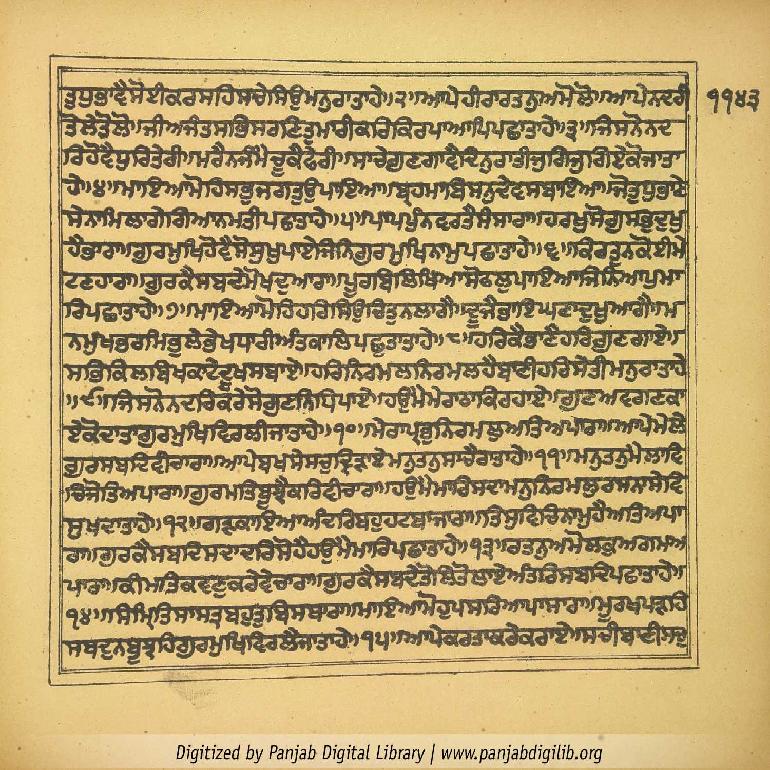 ਤੁਧੁਭਾਵੈਸੋਈਕਰਸਹਿਸਚੇਸਿਉਮਨੁਰਾਤਾਹੇ॥੨॥ਆਪੇਹੀਰਾਰਤਨੁਅਮੋਲੋ॥ਆਪੇਨਦਰੀ ੧੧੪੩
ਤੋਲੇਤੋਲੋ॥ਜੀਅਜੰਤਸਭਿਸਰਣਿਤੁਮਾਰੀਕਰਿਕਿਰਪਾਆਪਿਪਛਾਤਾਹੇ॥੩॥ਜਿਸਨੋਨਦ
ਰਿਹੋਵੈਧੁਰਿਤੇਰੀ॥ਮਰੈਨਜੰਮੈਚੂਕੈਫੇਰੀ॥ਸਾਚੇਗੁਣਗਾਵੈਦਿਨੁਰਾਤੀਜੁਗਿਜੁਗਿਏਕੋਜਾਤਾ
ਹੇ॥੪॥ਮਾਇਆਮੋਹਿਸਭੁਜਗਤੁਉਪਾਇਆ॥ਬ੍ਰਹਮਾਬਿਸਨੁਦੇਵਸਬਾਇਆ॥ਜੋਤੁਧੁਭਾਣੇ
ਸੇਨਾਮਿਲਾਗੇਗਿਆਨਮਤੀਪਛਾਤਾਹੇ॥੫॥ਪਾਪਪੁੰਨਵਰਤੈਸੰਸਾਰਾ॥ਹਰਖੁਸੋਗੁਸਭੁਦੁਖੁ
ਹੈਭਾਰਾ॥ਗੁਰਮੁਖਿਹੋਵੈਸੋਸੁਖੁਪਾਏਜਿਨਿਗੁਰਮੁਖਿਨਾਮੁਪਛਾਤਾਹੇ॥੬॥ਕਿਰਤੁਨਕੋਈਮੇ
ਟਣਹਾਰਾ॥ਗੁਰਕੈਸਬਦੇਮੋਖਦੁਆਰਾ॥ਪੂਰਬਿਲਿਖਿਆਸੋਫਲੁਪਾਇਆਜਿਨਿਆਪੁਮਾ
ਰਿਪਛਾਤਾਹੇ॥੭॥ਮਾਇਆਮੋਹਿਹਰਿਸਿਉਚਿਤੁਨਲਾਗੈ॥ਦੂਜੈਭਾਇਘਣਾਦੁਖੁਆਗੈ॥ਮ
ਨਮੁਖਭਰਮਿਭੁਲੇਭੇਖਧਾਰੀਅੰਤਕਾਲਿਪਛੁਤਾਤਾਹੇ॥੮॥ਹਰਿਕੈਭਾਣੈਹਰਿਗੁਣਗਾਏ॥
ਸਭਿਕਿਲਬਿਖਕਾਟੇਦੂਖਸਬਾਏ॥ਹਰਿਨਿਰਮਲਨਿਰਮਲਹੈਬਾਣੀਹਰਿਸੇਤੀਮਨੁਰਾਤਾਹੇ
॥੯॥ਜਿਸਨੋਨਦਰਿਕਰੇਸੋਗੁਣਨਿਧਿਪਾਏ॥ਹਉਮੈਮੇਰਾਠਾਕਿਰਹਾਏ॥ਗੁਣਅਵਗਣਕਾ
ਏਕੋਦਾਤਾਗੁਰਮੁਖਿਵਿਰਲੀਜਾਤਾਹੇ॥੧੦॥ਮੇਰਾਪ੍ਰਭੁਨਿਰਮਲੁਅਤਿਅਪਾਰਾ॥ਆਪੇਮੇਲੈ
ਗੁਰਸਬਦਿਵੀਚਾਰਾ॥ਆਪੇਬਖਸੇਸਚੁਦ੍ਰਿੜਾਏਮਨੁਤਨੁਸਾਚੈਰਾਤਾਹੇ॥੧੧॥ਮਨੁਤਨੁਮੈਲਾਵਿ
ਚਿਜੋਤਿਅਪਾਰਾ॥ਗੁਰਮਤਿਬੂਝੈਕਰਿਵੀਚਾਰਾ॥ਹਉਮੈਮਾਰਿਸਦਾਮਨੁਨਿਰਮਲੁਰਸਨਾਸੇਵਿ
ਸੁਖਦਾਤਾਹੇ॥੧੨॥ਗੜਕਾਇਆਅੰਦਰਿਬਹੁਹਟਬਾਜਾਰਾ॥ਤਿਸੁਵਿਚਿਨਾਮੁਹੈਅਤਿਅਪਾ
ਰਾ॥ਗੁਰਕੈਸਬਦਿਸਦਾਦਰਿਸੋਹੈਹਉਮੈਮਾਰਿਪਛਾਤਾਹੇ॥੧੩॥ਰਤਨੁਅਮੋਲਕੁਅਗਮਅ
ਪਾਰਾ॥ਕੀਮਤਿਕਵਣੁਕਰੇਵੇਚਾਰਾ॥ਗੁਰਕੈਸਬਦੇਤੋਲਿਤੋਲਾਏਅੰਤਰਿਸਬਦਿਪਛਾਤਾਹੇ॥
੧੪॥ਸਿਮ੍ਰਿਤਿਸਾਸਤ੍ਰਬਹੁਤੁਬਿਸਥਾਰਾ॥ਮਾਇਆਮੋਹੁਪਸਰਿਆਪਾਸਾਰਾ॥ਮੂਰਖਪੜਹਿ
ਸਬਦੁਨਬੂਝਹਿਗੁਰਮੁਖਿਵਿਰਲੈਜਾਤਾਹੇ॥੧੫॥ਆਪੇਕਰਤਾਕਰੇਕਰਾਏ॥ਸਚੀਬਾਣੀਸਚੁ
Digitized by Panjab Digital Library | www.panjabdigilib.org